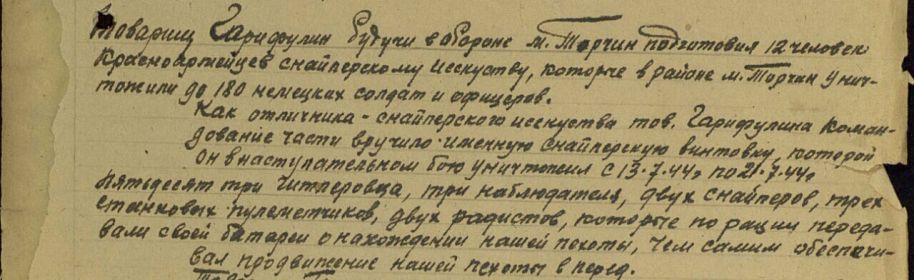 Товарищ Гарифулин будучи в обороне м. Торчин подготовил 12 человек
Красноармейцев снайперскому исскуству, которые в районе м. Торчин унич-
тожили до 180 немецких солдат и офицеров.
Как отличника-снайперского исскуства тов. Гарифулина Коман-
дование части вручило именную снайперскую винтовку, которой
он в наступательном бою уничтожил с 13.7.44г по 21.7.44г
пятьдесят три гитлеровца, три наблюдателя, двух снайперов, трех
станковых пулеметчиков, двух радистов, которые по рации переда-
вали своей батареи о нахождении нашей пехоты, чем самим обеспечи-
вал продвижение нашей пехоты в перед.